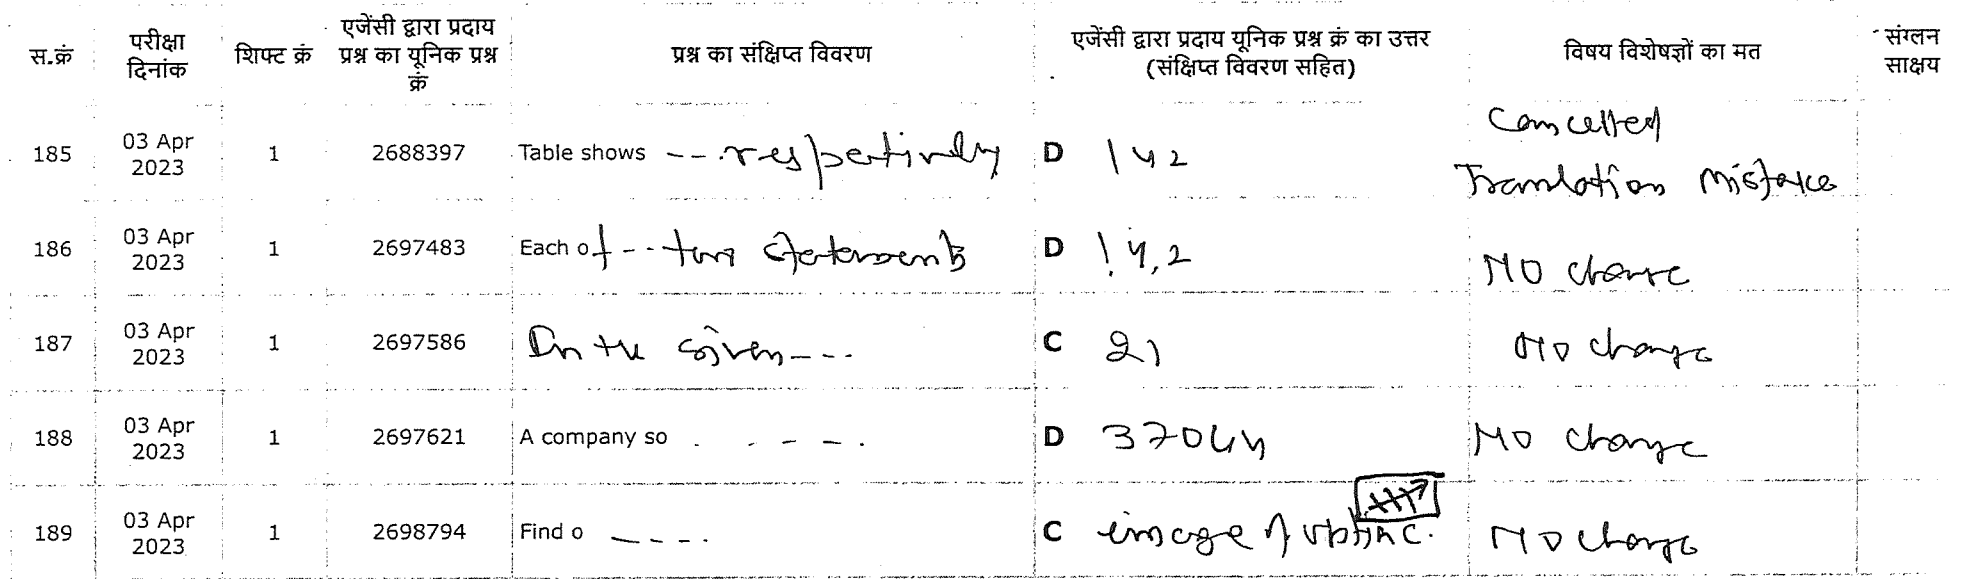 स.क्रं परीक्षा दिनांक शिफ्ट क्रं एजेंसी द्वारा प्रदाय प्रश्न का यूनिक प्रश्न क्रं प्रश्न का संक्षिप्त विवरण एजेंसी द्वारा प्रदाय यूनिक प्रश्न क्रं का उत्तर (संक्षिप्त विवरण सहित) विषय विशेषज्ञों का मत संग्लन साक्षय
185 03 Apr 2023 1 2688397 Table shows --- respectively D 1 4 2 Cancelled Translation Mistake
186 03 Apr 2023 1 2697483 Each of --- two statements D 1 4, 2 NO change
187 03 Apr 2023 1 2697586 In the given --- C 21 NO change
188 03 Apr 2023 1 2697621 A company so . - - - . D 37044 NO change
189 03 Apr 2023 1 2698794 Find o ---- C image of option C. NO change